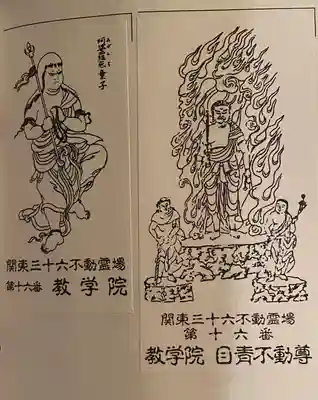 阿婆羅底童子
関東三十六不動霊場
第十六番 教学院
関東三十六不動霊場
第十六番
教学院 目青不動尊